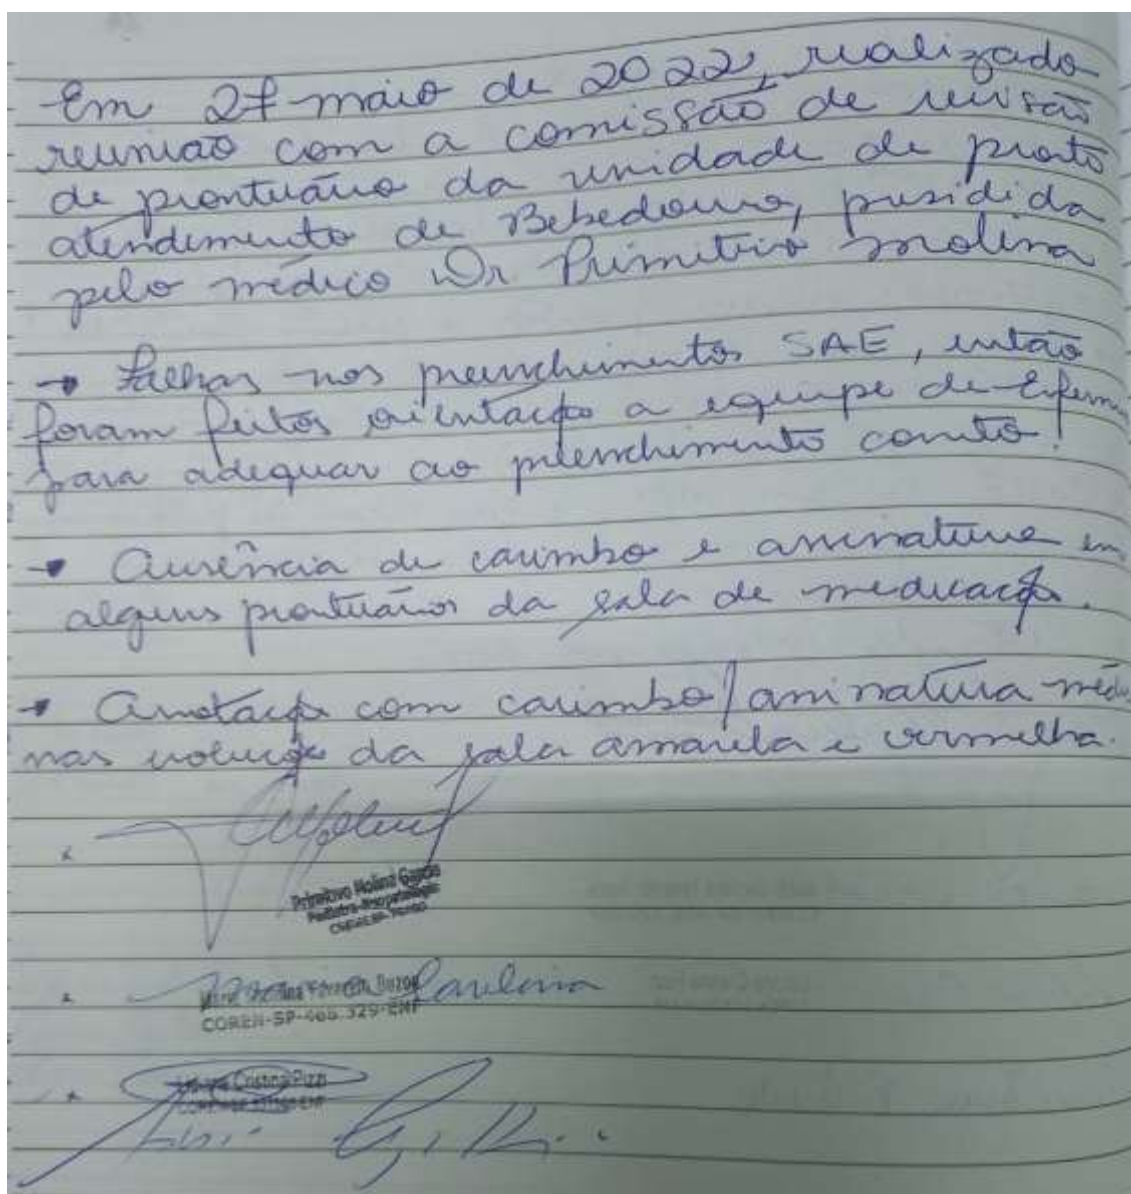 Em 27 maio de 2022, realizado
reunião com a comissão de revisão
de prontuário da unidade de pronto
atendimento de Bebedouro, presidida
pelo médico Dr Primitivo Molina
→ Falhas nos preenchimentos SAE, então
foram feitos orientação a equipe de Enferm
para adequar ao preenchimento correto!
→ Ausência de carimbo e assinatura em
alguns prontuários da sala de medicação.
→ Anotação com carimbo/assinatura méd
nas evolução da sala amarela e vermelha.
Primitivo Molina Garcia
Pediatra
COREN-SP-466.329-ENF
Cristina Pizzi